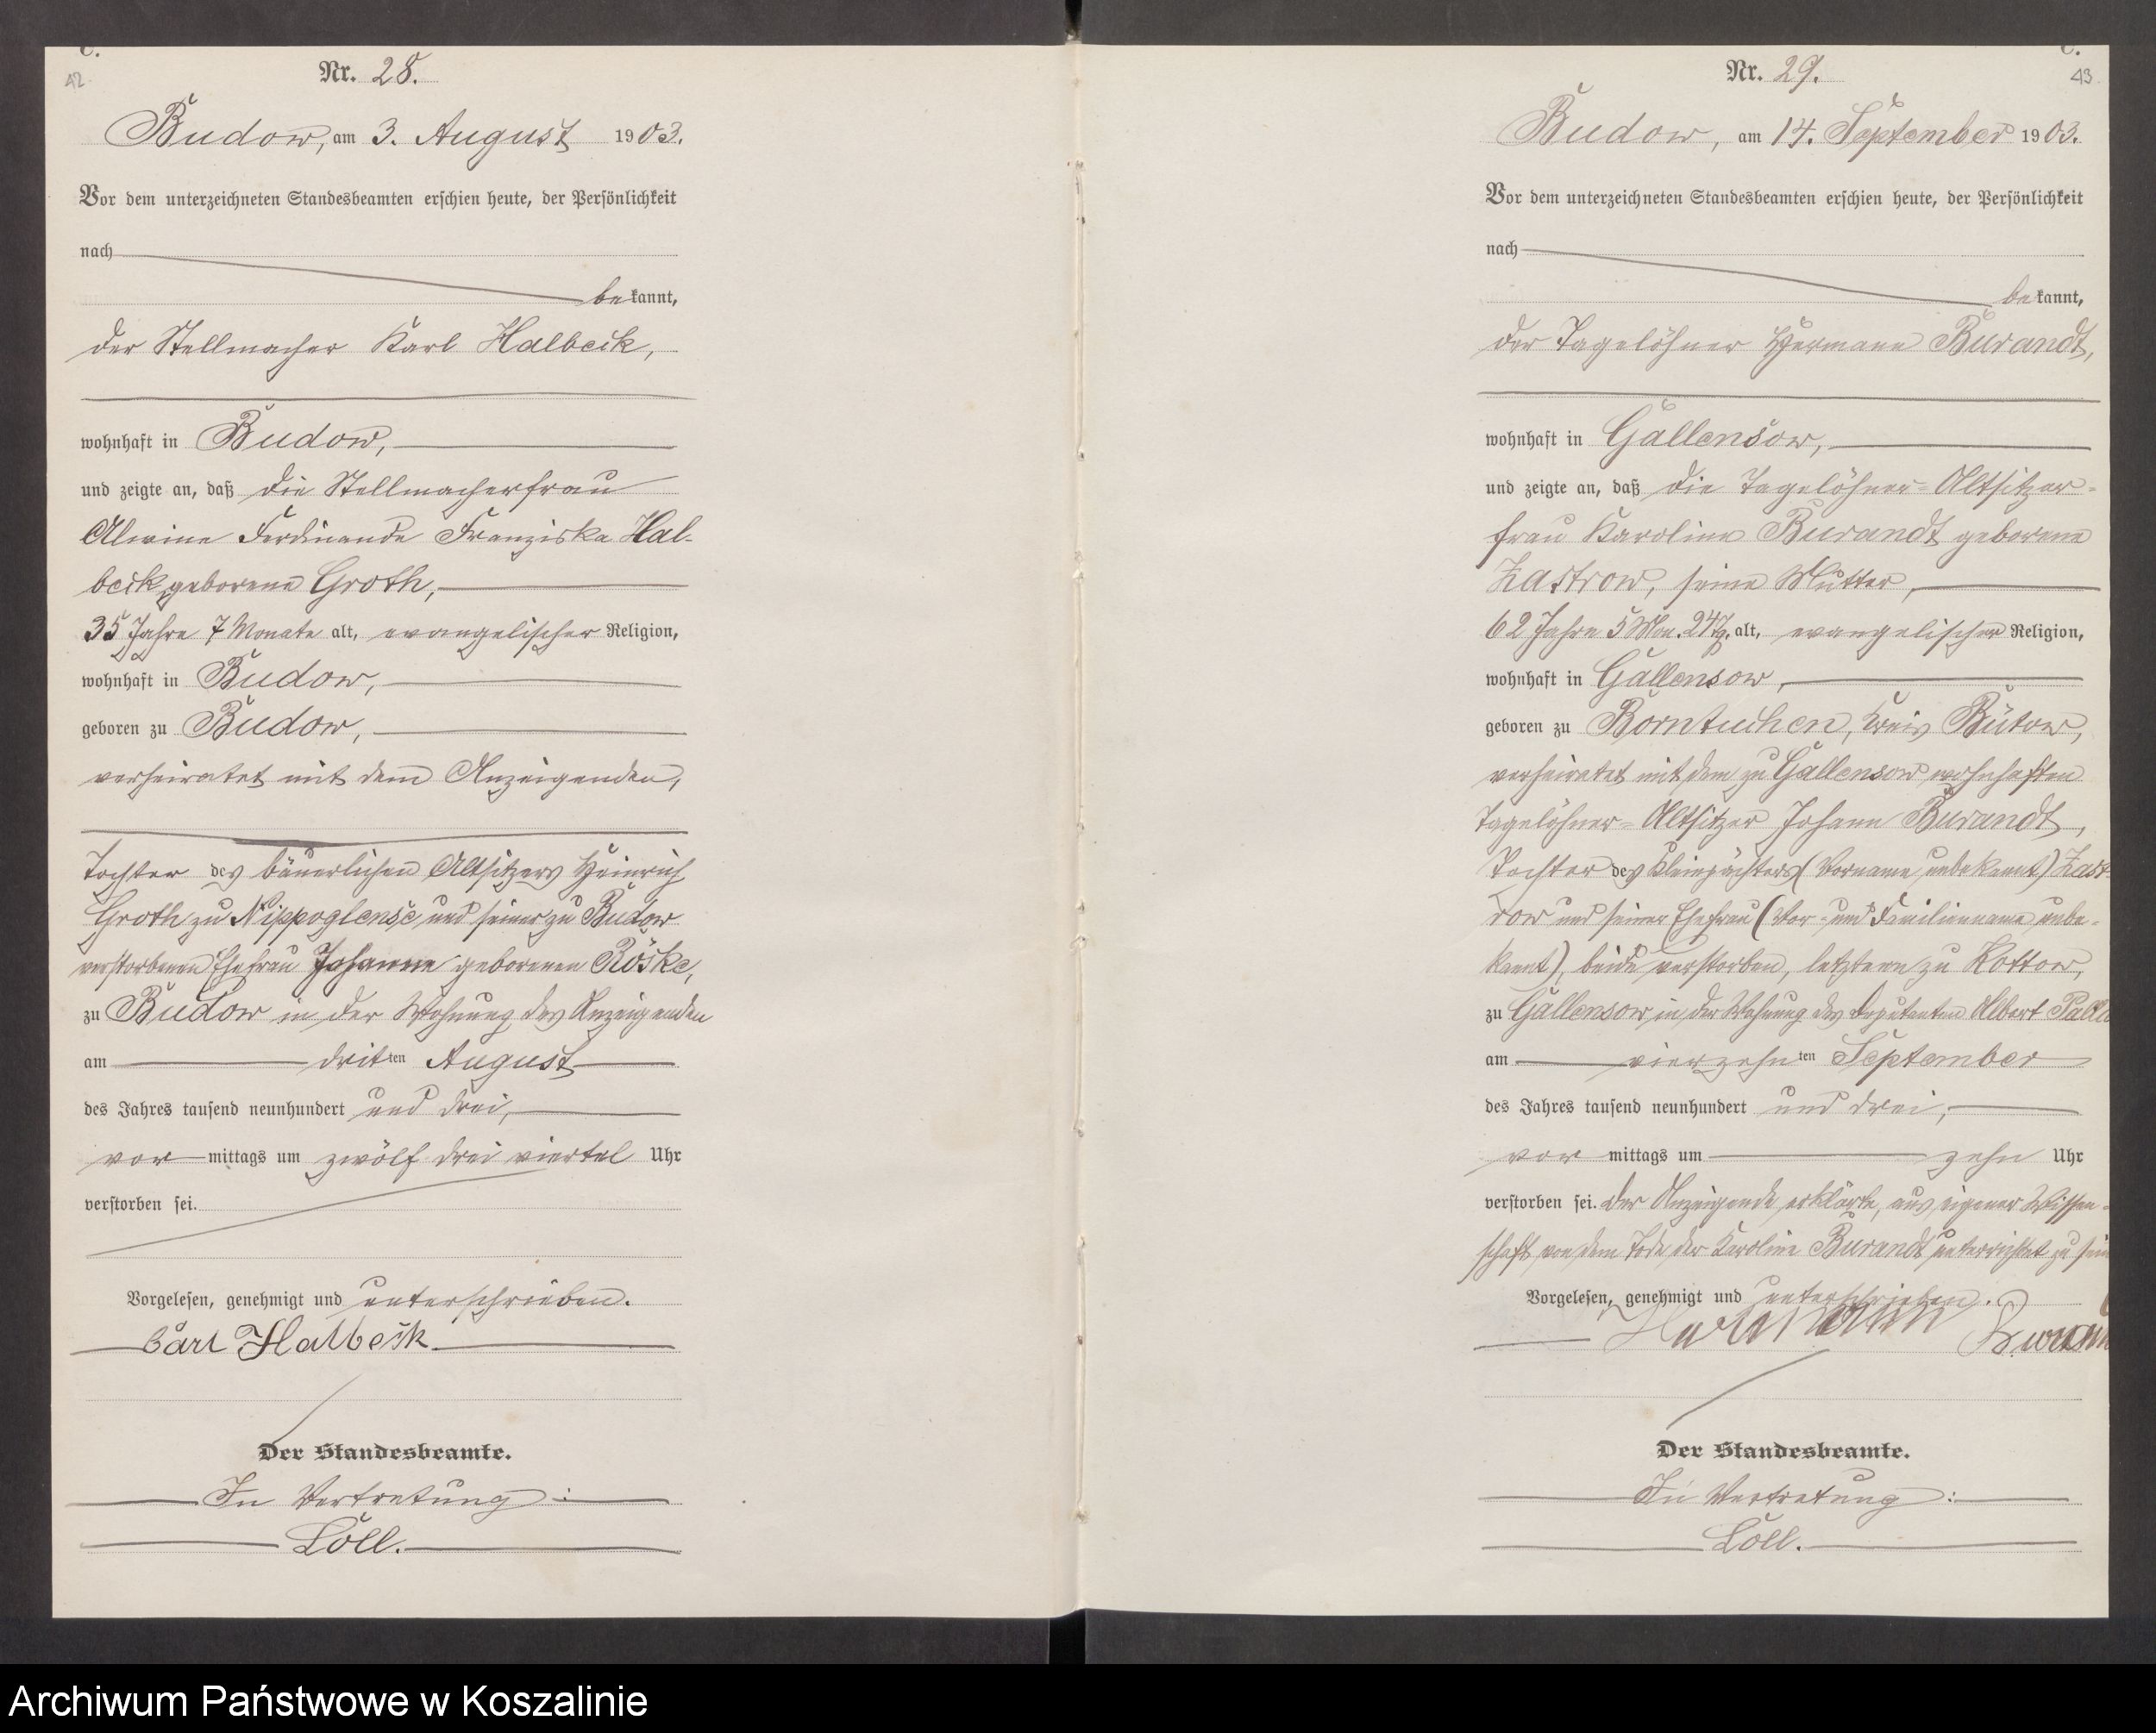 C.
42
Nr. 28.
Budow, am 3. August 1903.
Vor dem unterzeichneten Standesbeamten erschien heute, der Persönlichkeit
nach
bekannt,
der Stellmacher Karl Halbeik,
wohnhaft in Budow,
und zeigte an, daß die Stellmacherfrau
Alwine Ferdinande Franziska Hal-
beik geborene Groth,
35 Jahre 7 Monate alt, evangelischer Religion,
wohnhaft in Budow,
geboren zu Budow,
verheiratet mit dem Anzeigenden,
Tochter des bäuerlichen Altsitzers Heinrich
Groth zu Nippoglense und seiner zu Budow
verstorbenen Ehefrau Johanne geborenen Röske,
zu Budow in der Wohnung des Anzeigenden
am dritten August
des Jahres tausend neunhundert und drei,
vormittags um zwölf drei viertel Uhr
verstorben sei.
Vorgelesen, genehmigt und unterschrieben.
Carl Halbeik
Der Standesbeamte.
In Vertretung:
Löll.
C.
43
Nr. 29.
Budow, am 14. September 1903.
Vor dem unterzeichneten Standesbeamten erschien heute, der Persönlichkeit
nach
bekannt,
der Tagelöhner Hermann Burandt,
wohnhaft in Gallensow,
und zeigte an, daß die Tagelöhner-Altsitzer-
frau Karoline Burandt geborene
Zastrow, seine Mutter,
62 Jahre 5 Mon. 24 Tg. alt, evangelischer Religion,
wohnhaft in Gallensow,
geboren zu Borntuchen, Kreis Bütow,
verheiratet mit dem zu Gallensow wohnhaften
Tagelöhner-Altsitzer Johann Burandt,
Tochter des Kleinpächters (Vorname unbekannt) Zast-
row und seiner Ehefrau (Vor- und Familienname unbe-
kannt), beide verstorben, letztere zu Kottow,
zu Gallensow in der Wohnung des Deputanten Albert
am vierzehnten September
des Jahres tausend neunhundert und drei,
vormittags um zehn Uhr
verstorben sei. Der Anzeigende erklärte, aus eigener Wissen-
schaft von dem Tode der Karoline Burandt unterrichtet zu sein
Vorgelesen, genehmigt und unterschrieben.
Hermann
Der Standesbeamte.
In Vertretung:
Löll.
Archiwum Państwowe w Koszalinie